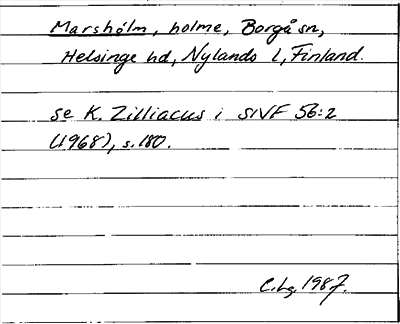 Marshólm, holme, Borgå sn,
Helsinge hd, Nylands l, Finland.
se K. Zilliacus i SNF 56:2
(1968), s. 180.
C.Lg. 1987.